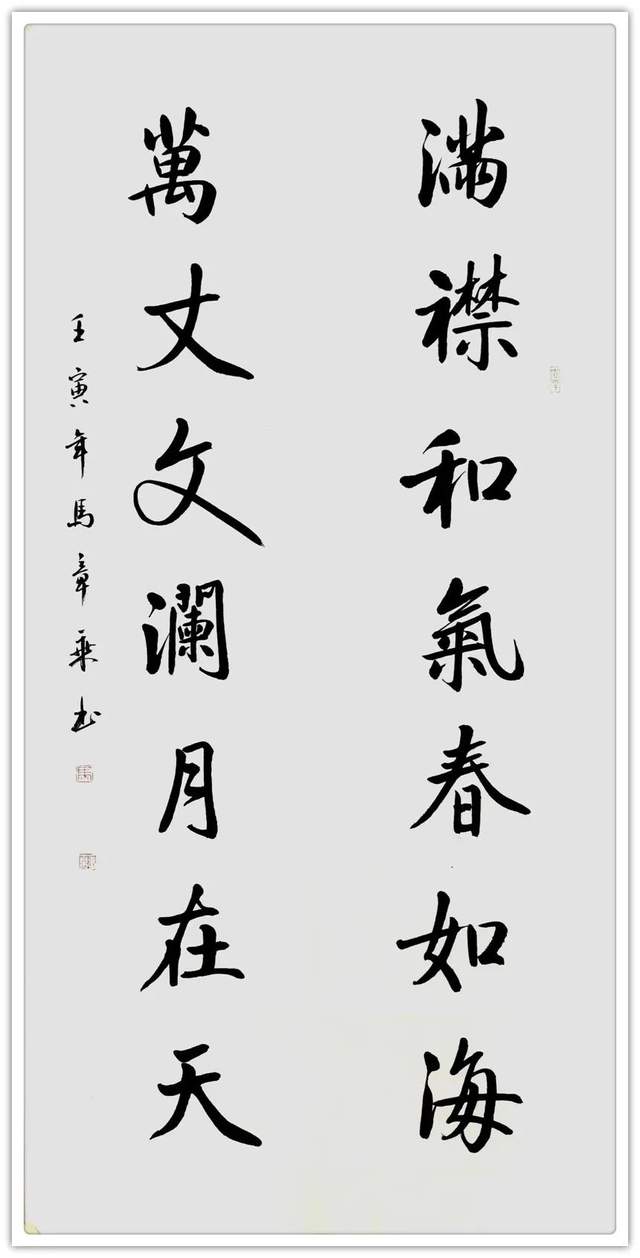 滿襟和氣春如海
萬丈文瀾月在天
壬寅年馬章乘书